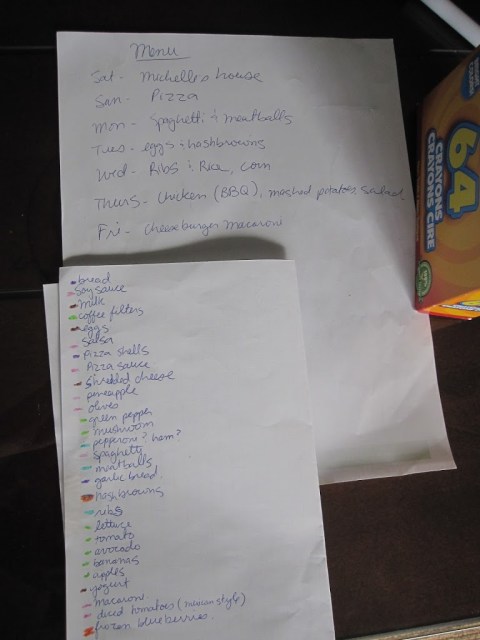 Menu
Sat - Michelle's house
Sun - Pizza
Mon - Spaghetti & meatballs
Tues - eggs & hashbrowns
Wed - Ribs & Rice, corn
Thurs - Chicken (BBQ), mashed potatoes, salad.
Fri - Cheeseburger Macaroni
64
CRAYONS
CRAYONS CIRE
bread
Soy sauce
milk
coffee filters
eggs
salsa
Pizza shells
Pizza sauce
Shredded cheese
pineapple
olives
green pepper
mushroom
pepperoni? ham?
spaghetti
meatballs
garlic bread
hashbrowns
ribs
lettuce
tomato
avocado
bananas
apples
yogurt
macaroni
diced tomatoes (mexican style)
frozen blueberries